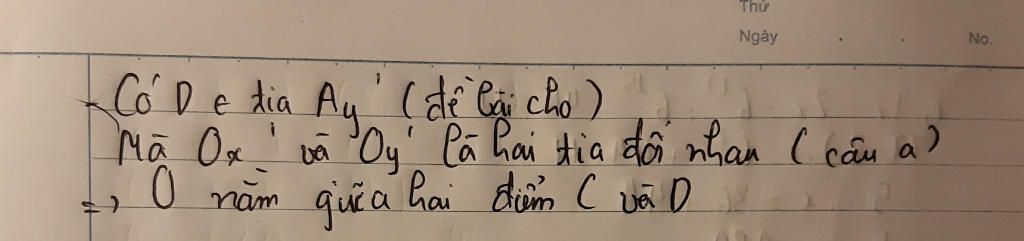 Thứ
Ngày . . No.
Có D ∈ tia Ay' (đề bài cho)
Mà Ox' và Oy' là hai tia đối nhau (câu a)
=> O nằm giữa hai điểm C và D